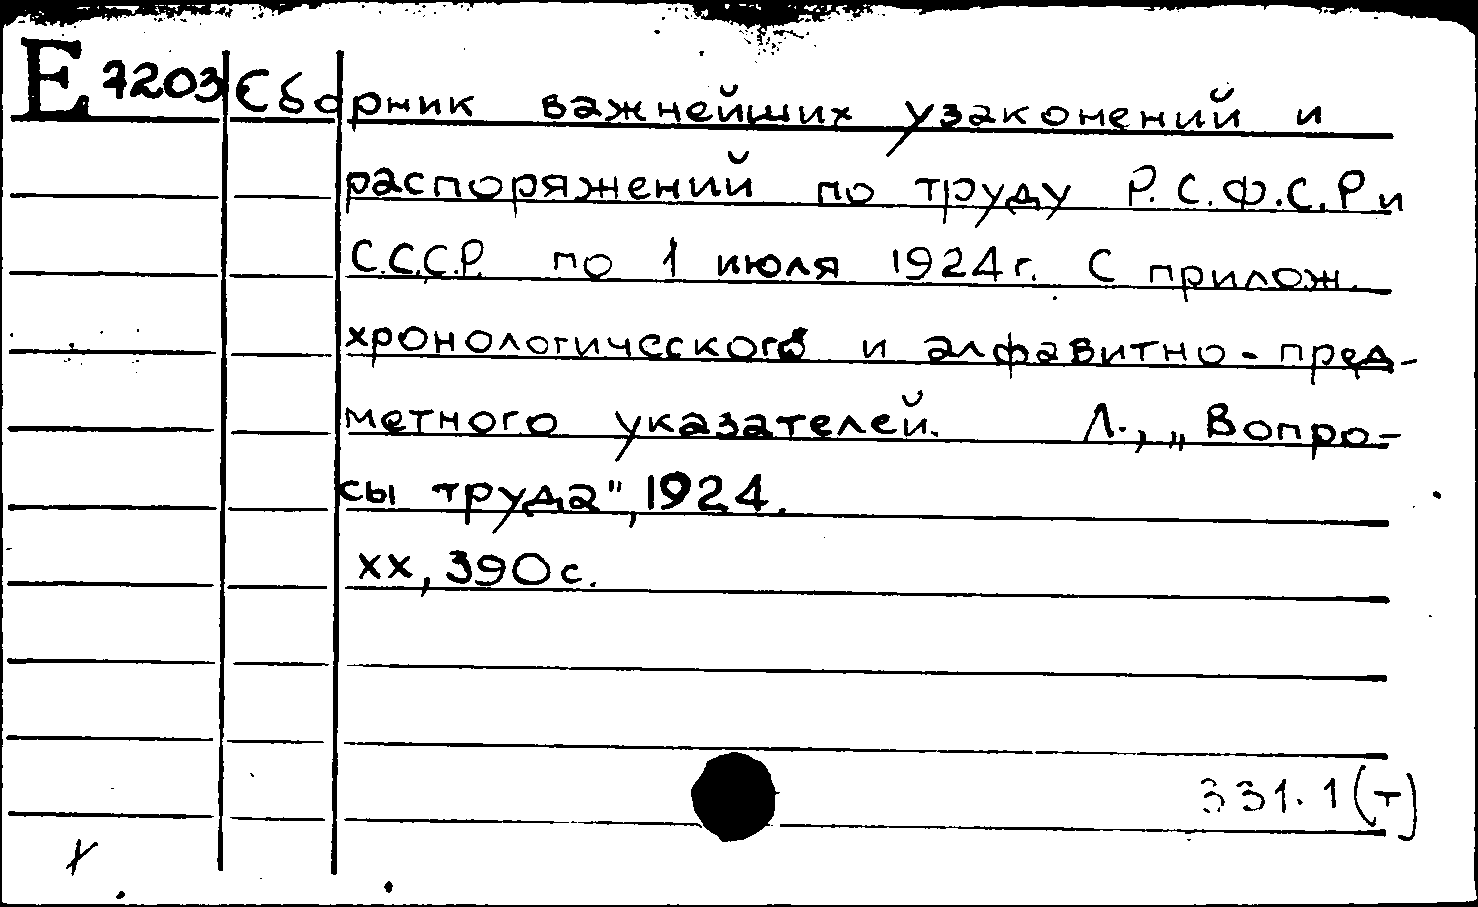 Е 7203 Сборник важнейших узаконений и
распоряжений по труду Р.С.Ф.С.Р и
С.С.С.Р. по 1 июля 1924 г. С прилож.
хронологического и алфавитно-пред-
метного указателей. Л., „Вопро-
сы труда", 1924.
XX, 390 с.
331.1(т)